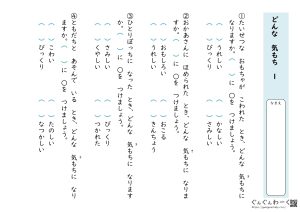 どんな 気もち 1
なまえ
①たいせつな おもちゃが こわれた とき、どんな 気もちに
なりますか。( )に 〇を つけましょう。
( )うれしい ( )かなしい
( )びっくり ( )さみしい
②おかあさんに ほめられた とき、どんな 気もちに なります
か。( )に 〇を つけましょう。
( )おもしろい ( )おこる
( )うれしい ( )きんちょう
③ひとりぼっちに なった とき、どんな 気もちに なります
か。( )に 〇を つけましょう。
( )さみしい ( )びっくり
( )くやしい ( )つかれた
④ともだちと あそんで いる とき、どんな 気もちに なり
ますか。( )に 〇を つけましょう。
( )こわい ( )たのしい
( )びっくり ( )なつかしい
ぐんぐんわーく